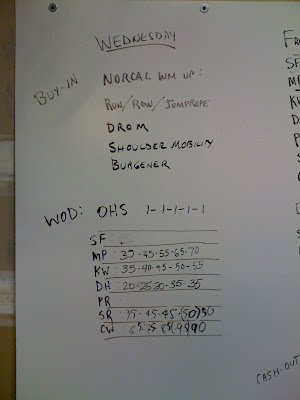 WEDNESDAY
BUY-IN
NORCAL WM UP:
RUN/ROW/JUMPROPE
DROM
SHOULDER MOBILITY
BURGENER
WOD: OHS 1-1-1-1-1
SF
MP: 35-45-55-65-70
KW: 35-40-45-50-55
DH: 20-25-30-35-35
PR
SR: 35-45-45-(50)50
CW
CASH-OUT
SF
KW